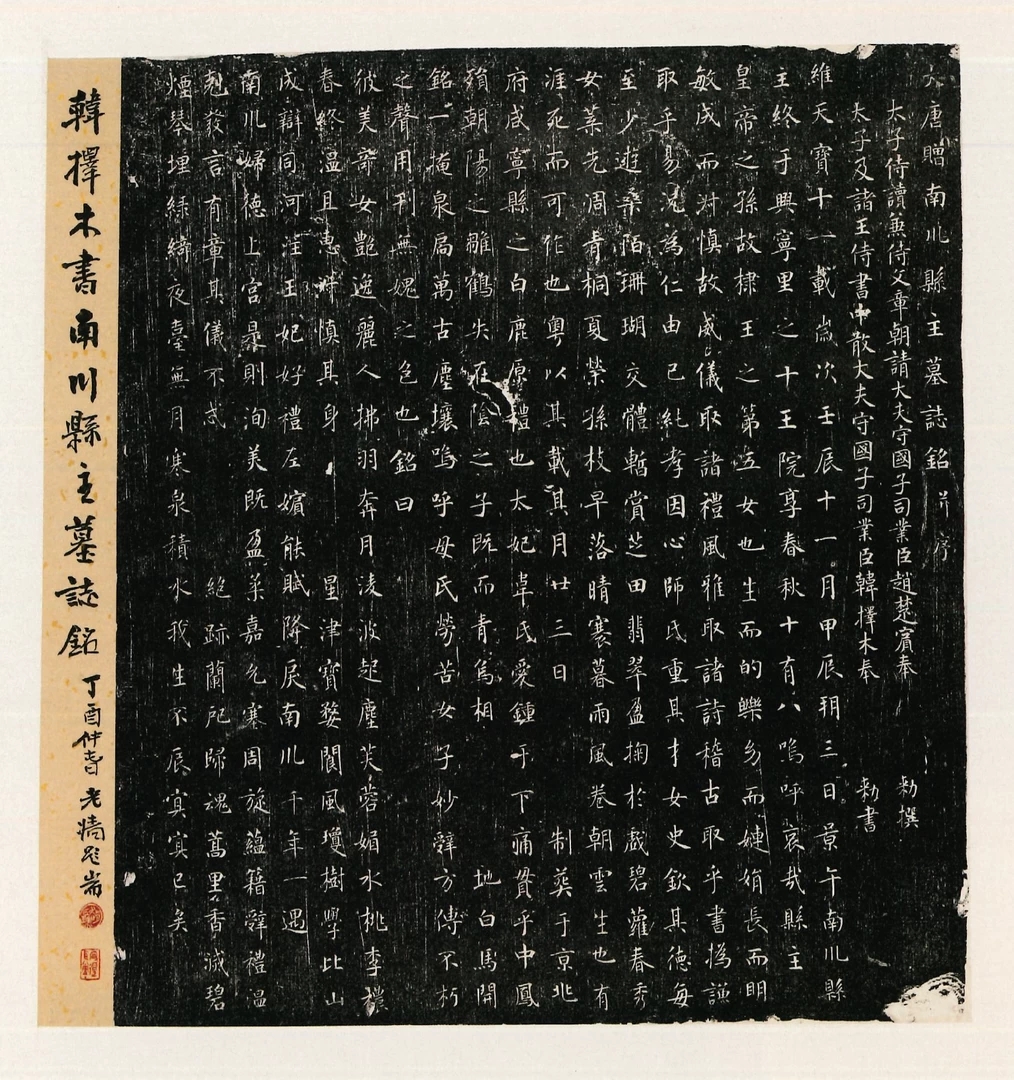 大唐贈南川縣主墓誌銘并序
太子侍讀兼侍文章朝請大夫守國子司業臣趙楚賓奉 勑撰
太子及諸王侍書中散大夫守國子司業臣韓擇木奉 勑書
維天寶十一載歲次壬辰十一月甲辰朔三日景午南川縣
主終于興寧里之十王院享春秋十有八嗚呼哀哉縣主
皇帝之孫故棣王之第五女也生而的皪幼而婕娟長而明
敏成而淑慎故威儀取諸禮風雅取諸詩稽古取乎書撝謙
取乎易況為仁由己純孝因心師氏重其才女史欽其德每
至少遊桑陌珊瑚交體暫賞芝田翡翠盈掬於戲碧蘿春秀
女蘿先凋青桐夏榮孫枝早落晴褰暮雨風卷朝雲生也有
涯死而可作也粵以其載其月廿三日 制葬于京兆
府咸寧縣之白鹿原禮也太妃韋氏愛鍾乎下痛貫乎中鳳
殞朝陽之雛鶴失在陰之子既而青烏相 地白馬開
銘一掩泉扃萬古塵壤嗚呼母氏勞苦女子妙辭方傳不朽
之聲用刊無媿之色也銘曰
彼美帝女艷逸麗人拂羽奔月淩波起塵芙蓉娟水桃李穠
春終溫且惠淑慎其身 星津寶婺閬風瓊樹學比山
成辯同河注王妃好禮左嬪能賦降戾南川千年一遇
南川婦德上宮是則洵美既盈柔嘉允塞周旋蘊籍辭禮溫
剋發言有章其儀不忒 絕跡蘭戺歸魂蒿里香滅碧
煙琴埋綠綺夜臺無月寒泉積水我生不辰寘寘已矣
韓擇木書南川縣主墓誌銘
丁酉仲春 老墻題耑